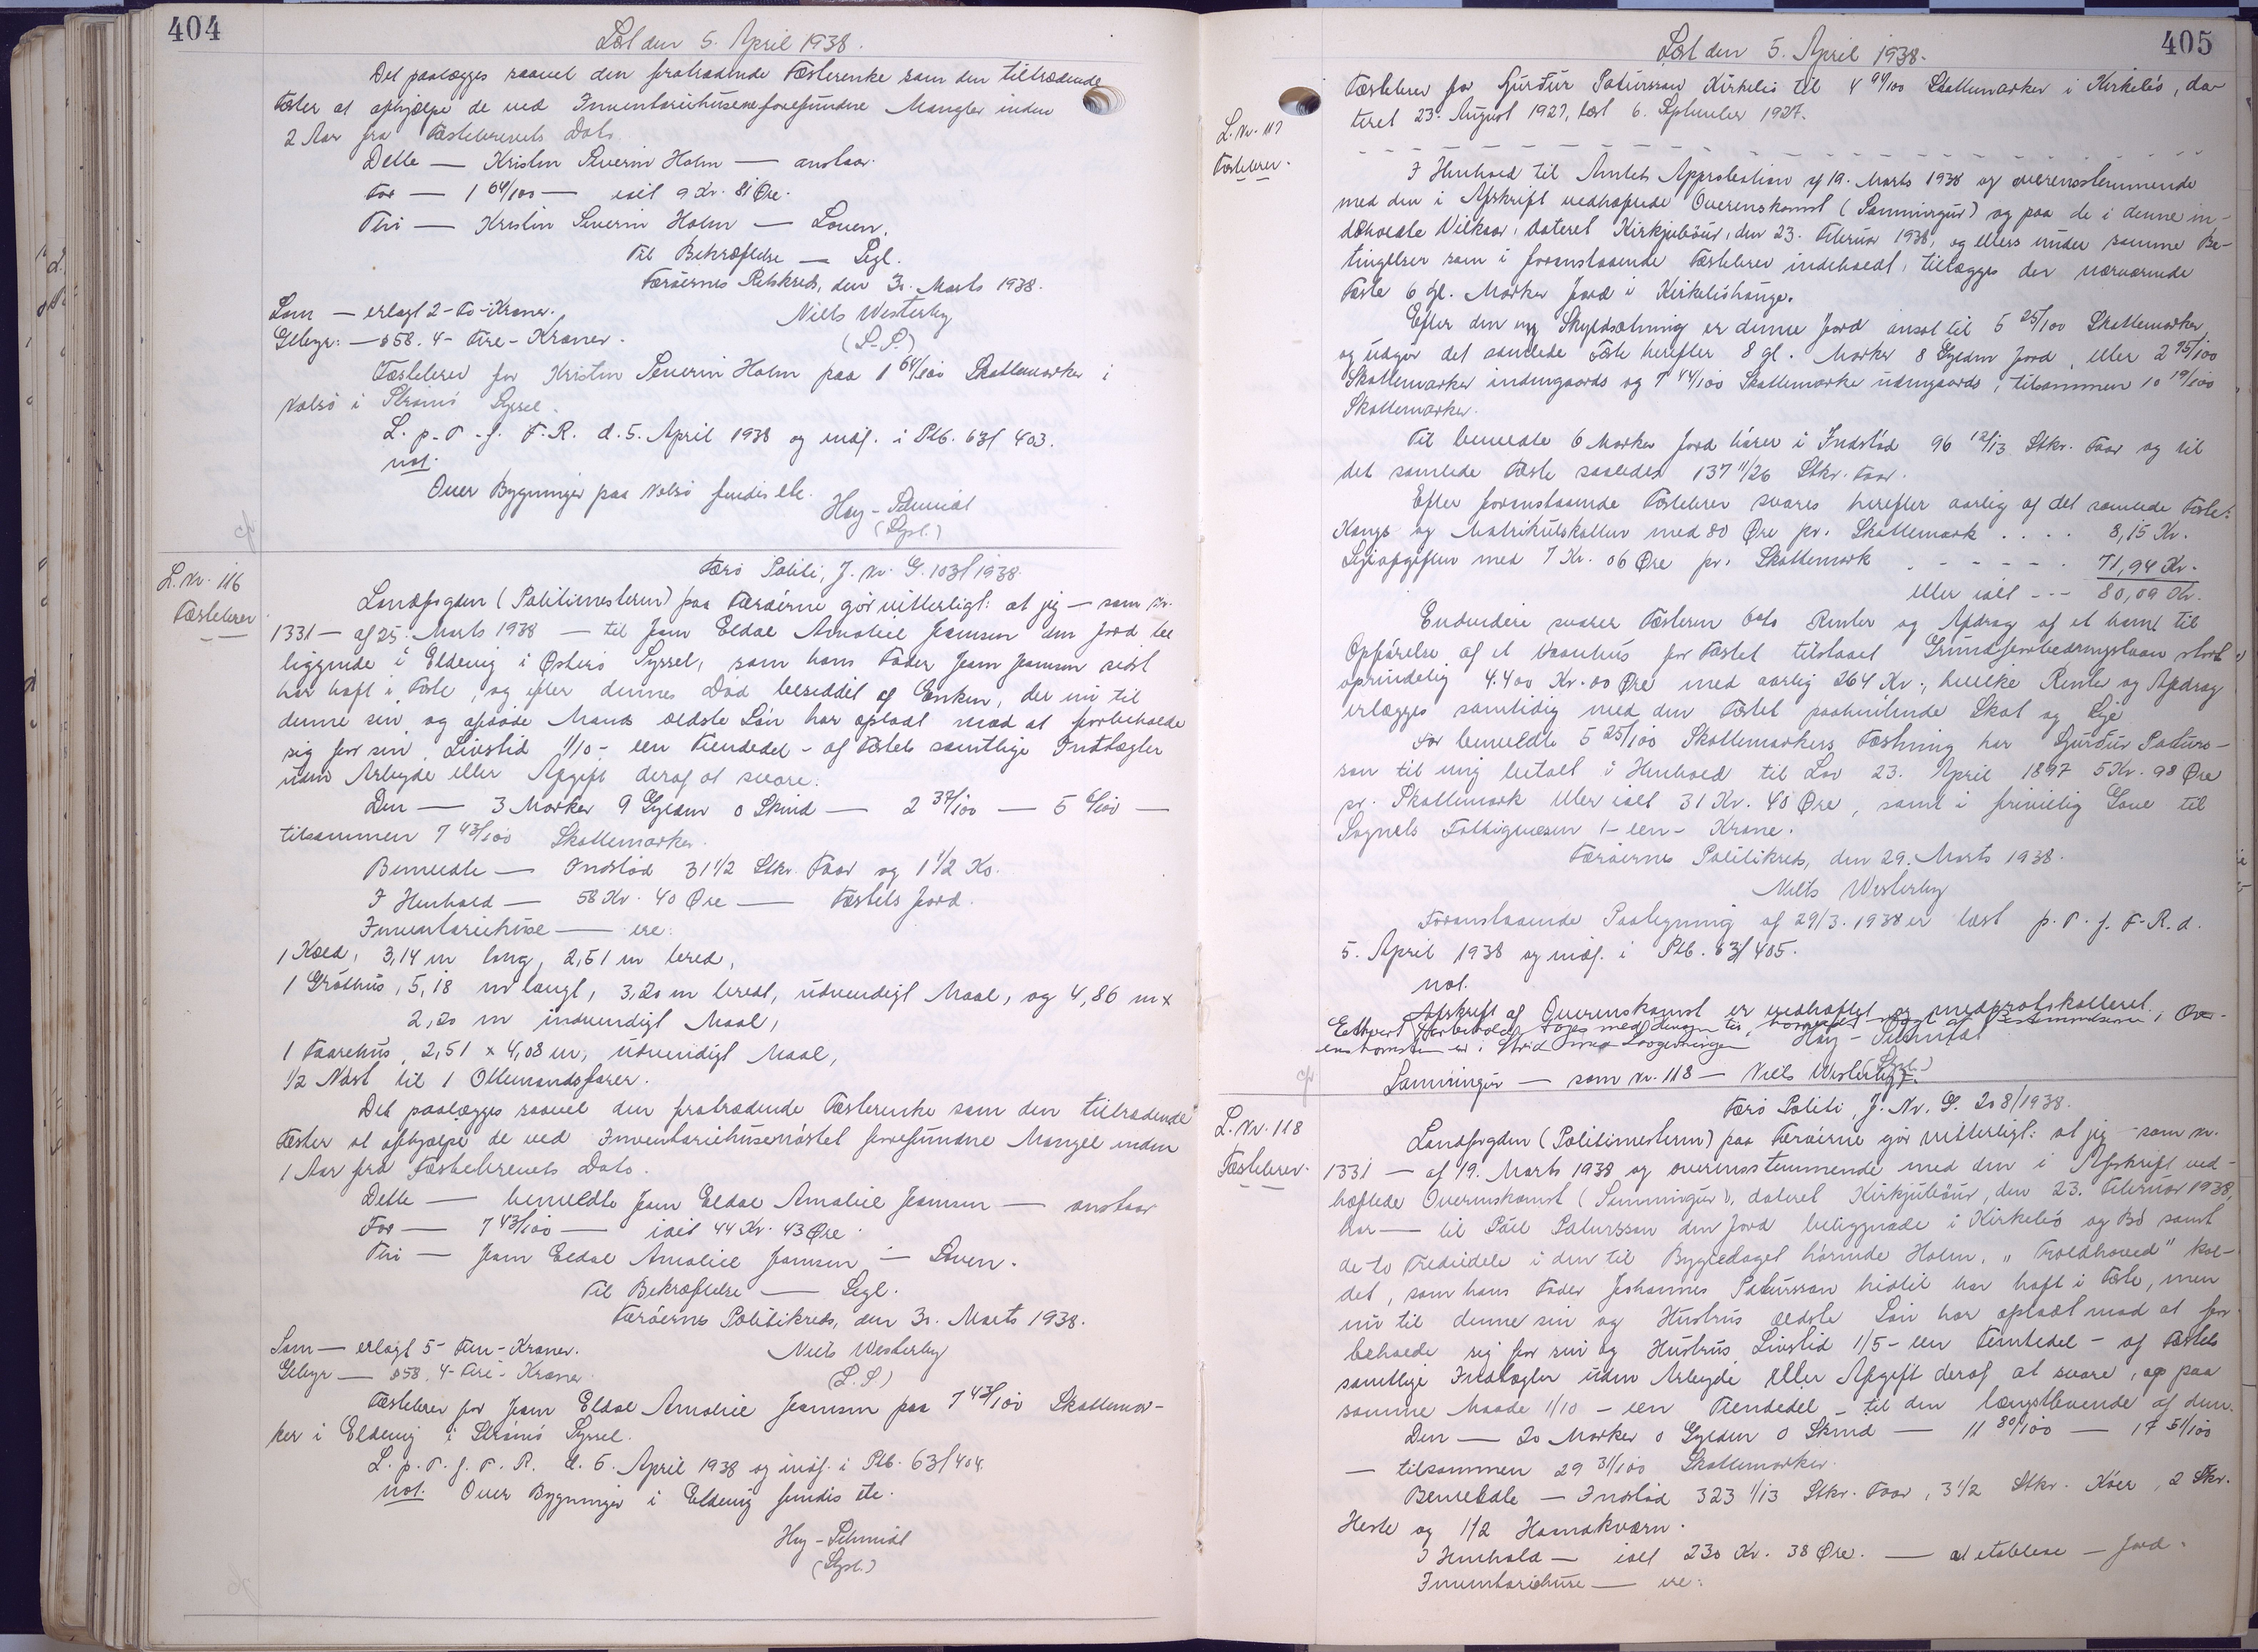 404
Læst den 5. April 1938.
Det paalægges saavel den fratrædende Fæsterenke som den tiltrædende
Fæster at afhjælpe de ved Inventariehusene forefundne Mangler inden
2 Aar fra Fæstebrevets Dato.
Dette — Kristen Severin Holm — anstaar.
For — 1 64/100 — ialt 9 Kr. 81 Øre.
Thi — Kristin Severin Holm — Loven.
Til Bekræftelse — Segl.
Færøernes Retskreds, den 31. Marts 1938.
Som — erlagt 2 - To - Kroner.
Niels Westerby
Gebyr: — § 58. 4 - Fire - Kroner.
(L. S.)
Fæstebrev for Kristen Severin Holm paa 1 64/100 Skattemarker i
Nolsø i Strømø Syssel.
L. p. T. f. F. R. d. 5. April 1938 og indf. i Ptb. 63/403.
not.
Over Bygninger paa Nolsø findis etc.
Hoy-Schmidt
(Dpt.)
L. Nr. 116
Fæstebrev
Færø Politi, J. Nr. G. 103/1938.
Landfogden (Politimesteren) paa Færøerne gør vitterligt: at jeg — som Nr.
1331 — af 25. Marts 1938 — til Joen Eldal Amaliel Joensen den Jord be
liggende i Eldevig i Østerø Syssel, som hans Fader Joen Joensen sidst
har haft i Fæste, og efter dennes Død besiddet af Enken, der nu til
denne sin og afdøde Mands ældste Søn har opladt mod at forbeholde
sig for sin Livstid 1/10 - een Tiendedel - af Fæstets samtlige Indtægter
uden Arbejde eller Afgift deraf at svare.
Den — 3 Marker 9 Gylden 0 Skind — 2 37/100 — 5 6/100 —
tilsammen 7 43/100 Skattemarker.
Bemeldte — Indstød 31 1/2 Stkr. Faar og 1 1/2 Ko.
I Henhold — 58 Kr. 40 Øre — Fæstets Jord.
Inventariehuse — ere:
1 Kæld, 3,14 m lang, 2,51 m bred,
1 Gróthus, 5,18 m langt, 3,20 m bredt, udvendigt Maal, og 4,86 m x
2,20 m indvendigt Maal,
1 Faarehus, 2,51 x 4,08 m, udvendigt Maal,
1/2 Nøst til 1 Ottemandsfarer.
Det paalægges saavel den fratrædende Fæsterenke som den tiltrædende
Fæster at afhjælpe de ved Inventariehusenøstet forefundne Mangel inden
1 Aar fra Fæstebrevets Dato.
Dette — bemeldte Joen Eldal Amaliel Joensen — anstaar
For — 7 43/100 — ialt 44 Kr. 43 Øre.
Thi — Joen Eldal Amaliel Joensen — Loven.
Til Bekræftelse — Segl.
Færøernes Politikreds, den 31. Marts 1938.
Som — erlagt 5 - Fem - Kroner.
Niels Westerby
Gebyr — § 58. 4 - Fire - Kroner.
(L. S)
Fæstebrev for Joen Eldal Amaliel Joensen paa 7 43/100 Skattemar-
ker i Eldevig i Strømø Syssel.
L. p. T. f. F. R. d. 5. April 1938 og indf. i Ptb. 63/404.
not. Over Bygninger i Eldevig findis etc.
Hoy-Schmidt
(Dpt.)
405
Læst den 5. April 1938.
Fæstebrev for Gurður Patursson Kirkebø til 4 94/100 Skattemarker i Kirkebø, da-
teret 23. August 1927, læst 6. September 1927.
L. Nr. 117
Fæstebrev.
I Henhold til Amtets Approbation af 19. Marts 1938 og overensstemmende
med den i Afskrift vedhæftede Overenskomst (Semmingur) og paa de i denne in-
deholdte Vilkaar, dateret Kirkjubøur, den 23. Februar 1938, og ellers under samme Be-
tingelser som i foranstaaende Fæstebrev indeholdt, tillægges der nærværende
Fæste 6 gl. Marker Jord i Kirkebøhauge.
Efter den ny Skyldsætning er denne Jord ansat til 5 25/100 Skattemarker,
og udgør det samlede Fæste herefter 8 gl. Marker 8 Gylden Jord, eller 2 75/100
Skattemarker indengaards og 7 44/100 Skattemarker udengaards, tilsammen 10 19/100
Skattemarker.
Til bemeldte 6 Marker Jord hører i Indstød 96 12/13 Stkr. Faar og til
det samlede Fæste saaledes 137 11/26 Stkr. Faar.
Efter foranstaaende Fæstebrev svares herefter aarlig af det samlede Fæste:
Kongs og Matrikulskatten med 80 Øre pr. Skattemark . . . . 8,15 Kr.
Lejeafgiften med 7 Kr. 06 Øre pr. Skattemark . - - - - - . 71,94 Kr.
eller ialt - - - 80,09 Kr.
Endvidere svarer Fæsteren 6% Renter og Afdrag af et ham til
Opførelse af et Vaanhus for Fæstet tilstaaet Grundforbedringslaan stort
oprindelig 4.400 Kr. 00 Øre med aarlig 264 Kr., hvilke Rente og Afdrag
erlægges samtidig med den Fæstet paahvilende Skat og Leje
For bemeldte 5 25/100 Skattemarkers Fæstning har Gurður Paturs-
son til mig betalt i Henhold til Lov 23. April 1897 5 Kr. 98 Øre
pr. Skattemark eller ialt 31 Kr. 40 Øre, samt i frivillig Gave til
Sognets Fattigvæsen 1 - een - Krone.
Færøernes Politikreds, den 29. Marts 1938.
Niels Westerby
Foranstaaende Paategning af 29/3. 1938 er læst p. T. f. F. R. d.
5. April 1938 og indf. i Ptb. 63/405.
not.
Afskrift af Overenskomst er vedhæftet og medprotokolleret.
Ethvert Forbehold tages med Hensyn til, hvorvidt noget af Bestemmelserne i Over-
enskomsten er i Strid med Lovgivningen
Hoy-Schmidt
(Dpt.)
Semmingur — som Nr. 118 — Niels Westerby.
L. Nr. 118
Fæstebrev.
Færø Politi, J. Nr. G. 208/1938.
Landfogden (Politimesteren) paa Færøerne gør vitterligt: at jeg — som Nr.
1331 — af 19. Marts 1938 og overensstemmende med den i Afskrift ved-
hæftede Overenskomst (Semmingur), dateret Kirkjubøur, den 23. Februar 1938,
har — til Páll Patursson den Jord beliggende i Kirkebø og Bø samt
de to Trediedele i den til Bygdelaget hørende Holm, „Troldhoved" kal-
det, som hans Fader Johannes Patursson hidtil har haft i Fæste, men
nu til denne sin og Hustrus ældste Søn har opladt mod at for
beholde sig for sin og Hustrus Livstid 1/5 - een Femtedel - af Fæstets
samtlige Indtægter uden Arbejde eller Afgift deraf at svare, og paa
samme Maade 1/10 - een Tiendedel - til den længstlevende af dem.
Den — 20 Marker 0 Gylden 0 Skind — 11 80/100 — 17 51/100
— tilsammen 29 31/100 Skattemarker.
Bemeldte — Indstød 323 1/13 Stkr. Faar, 3 1/2 Stkr. Køer, 2 Stkr.
Heste og 1/2 Haandkværn.
I Henhold — ialt 230 Kr. 38 Øre. — at etablere — Jord.
Inventariehuse — ere: